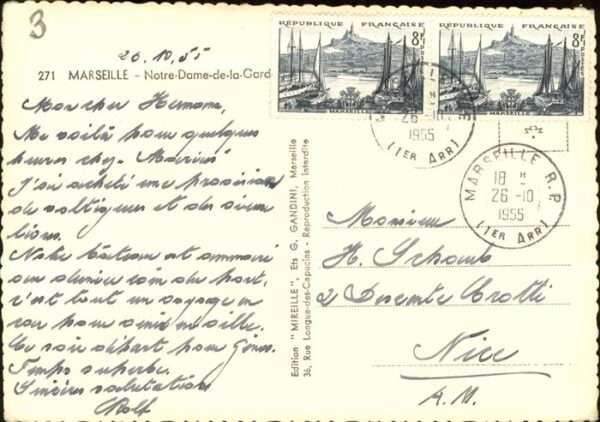 3
26.10.55
271 MARSEILLE - Notre-Dame-de-la-Gard
Mon cher Hermann,
Me voilà pour quelques
heures chez "Marius"
J'ai acheté une provision
de et des
Notre bateau est amarré
au dernier coin du port,
c'est tout un voyage en
pour venir en ville.
Ce soir départ pour Gênes.
Temps superbe.
Sincères salutations
Rolf
Edition "MIREILLE", Ets G. GANDINI, Marseille
36, Rue Longue-des-Capucins - Reproduction Interdite
RÉPUBLIQUE FRANÇAISE
8F
MARSEILLE
RÉPUBLIQUE FRANÇAISE
8F
MARSEILLE
26-10
1955
(1ER ARR)
MARSEILLE R.P.
18H
26-10
1955
(1ER ARR)
Monsieur
H. Schaub
2 Descente Crotti
Nice
A.M.